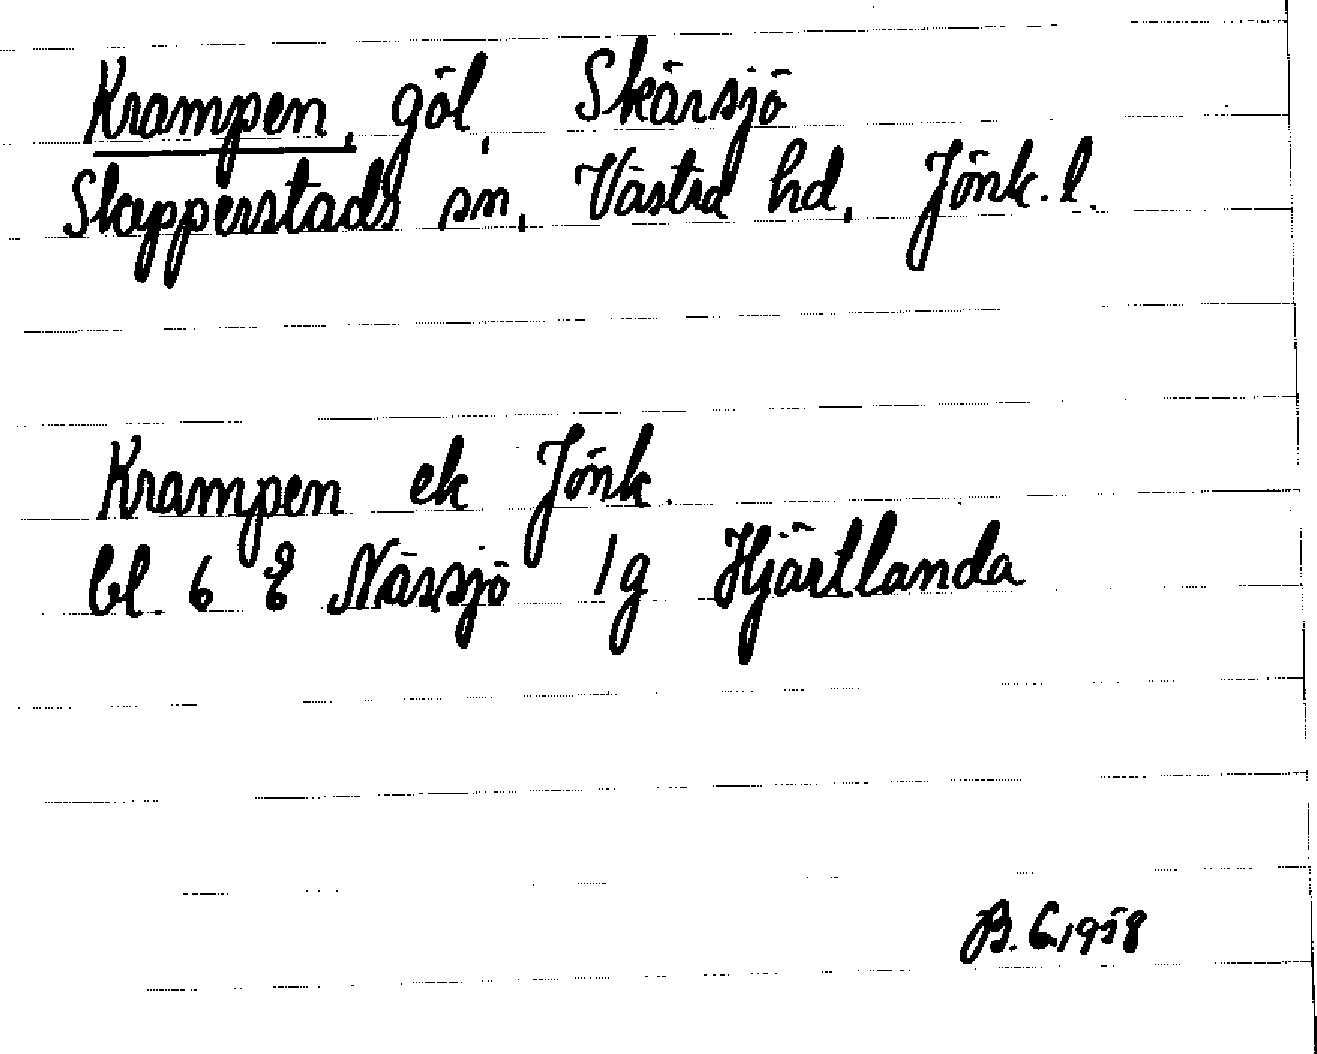 Krampen, göl, Skärsjö
Skepperstads sn, Västra hd, Jönk. l.
Krampen ek Jönk.
bl. 6 E Nässjö 1g Hjärtlanda
B. E. 1958